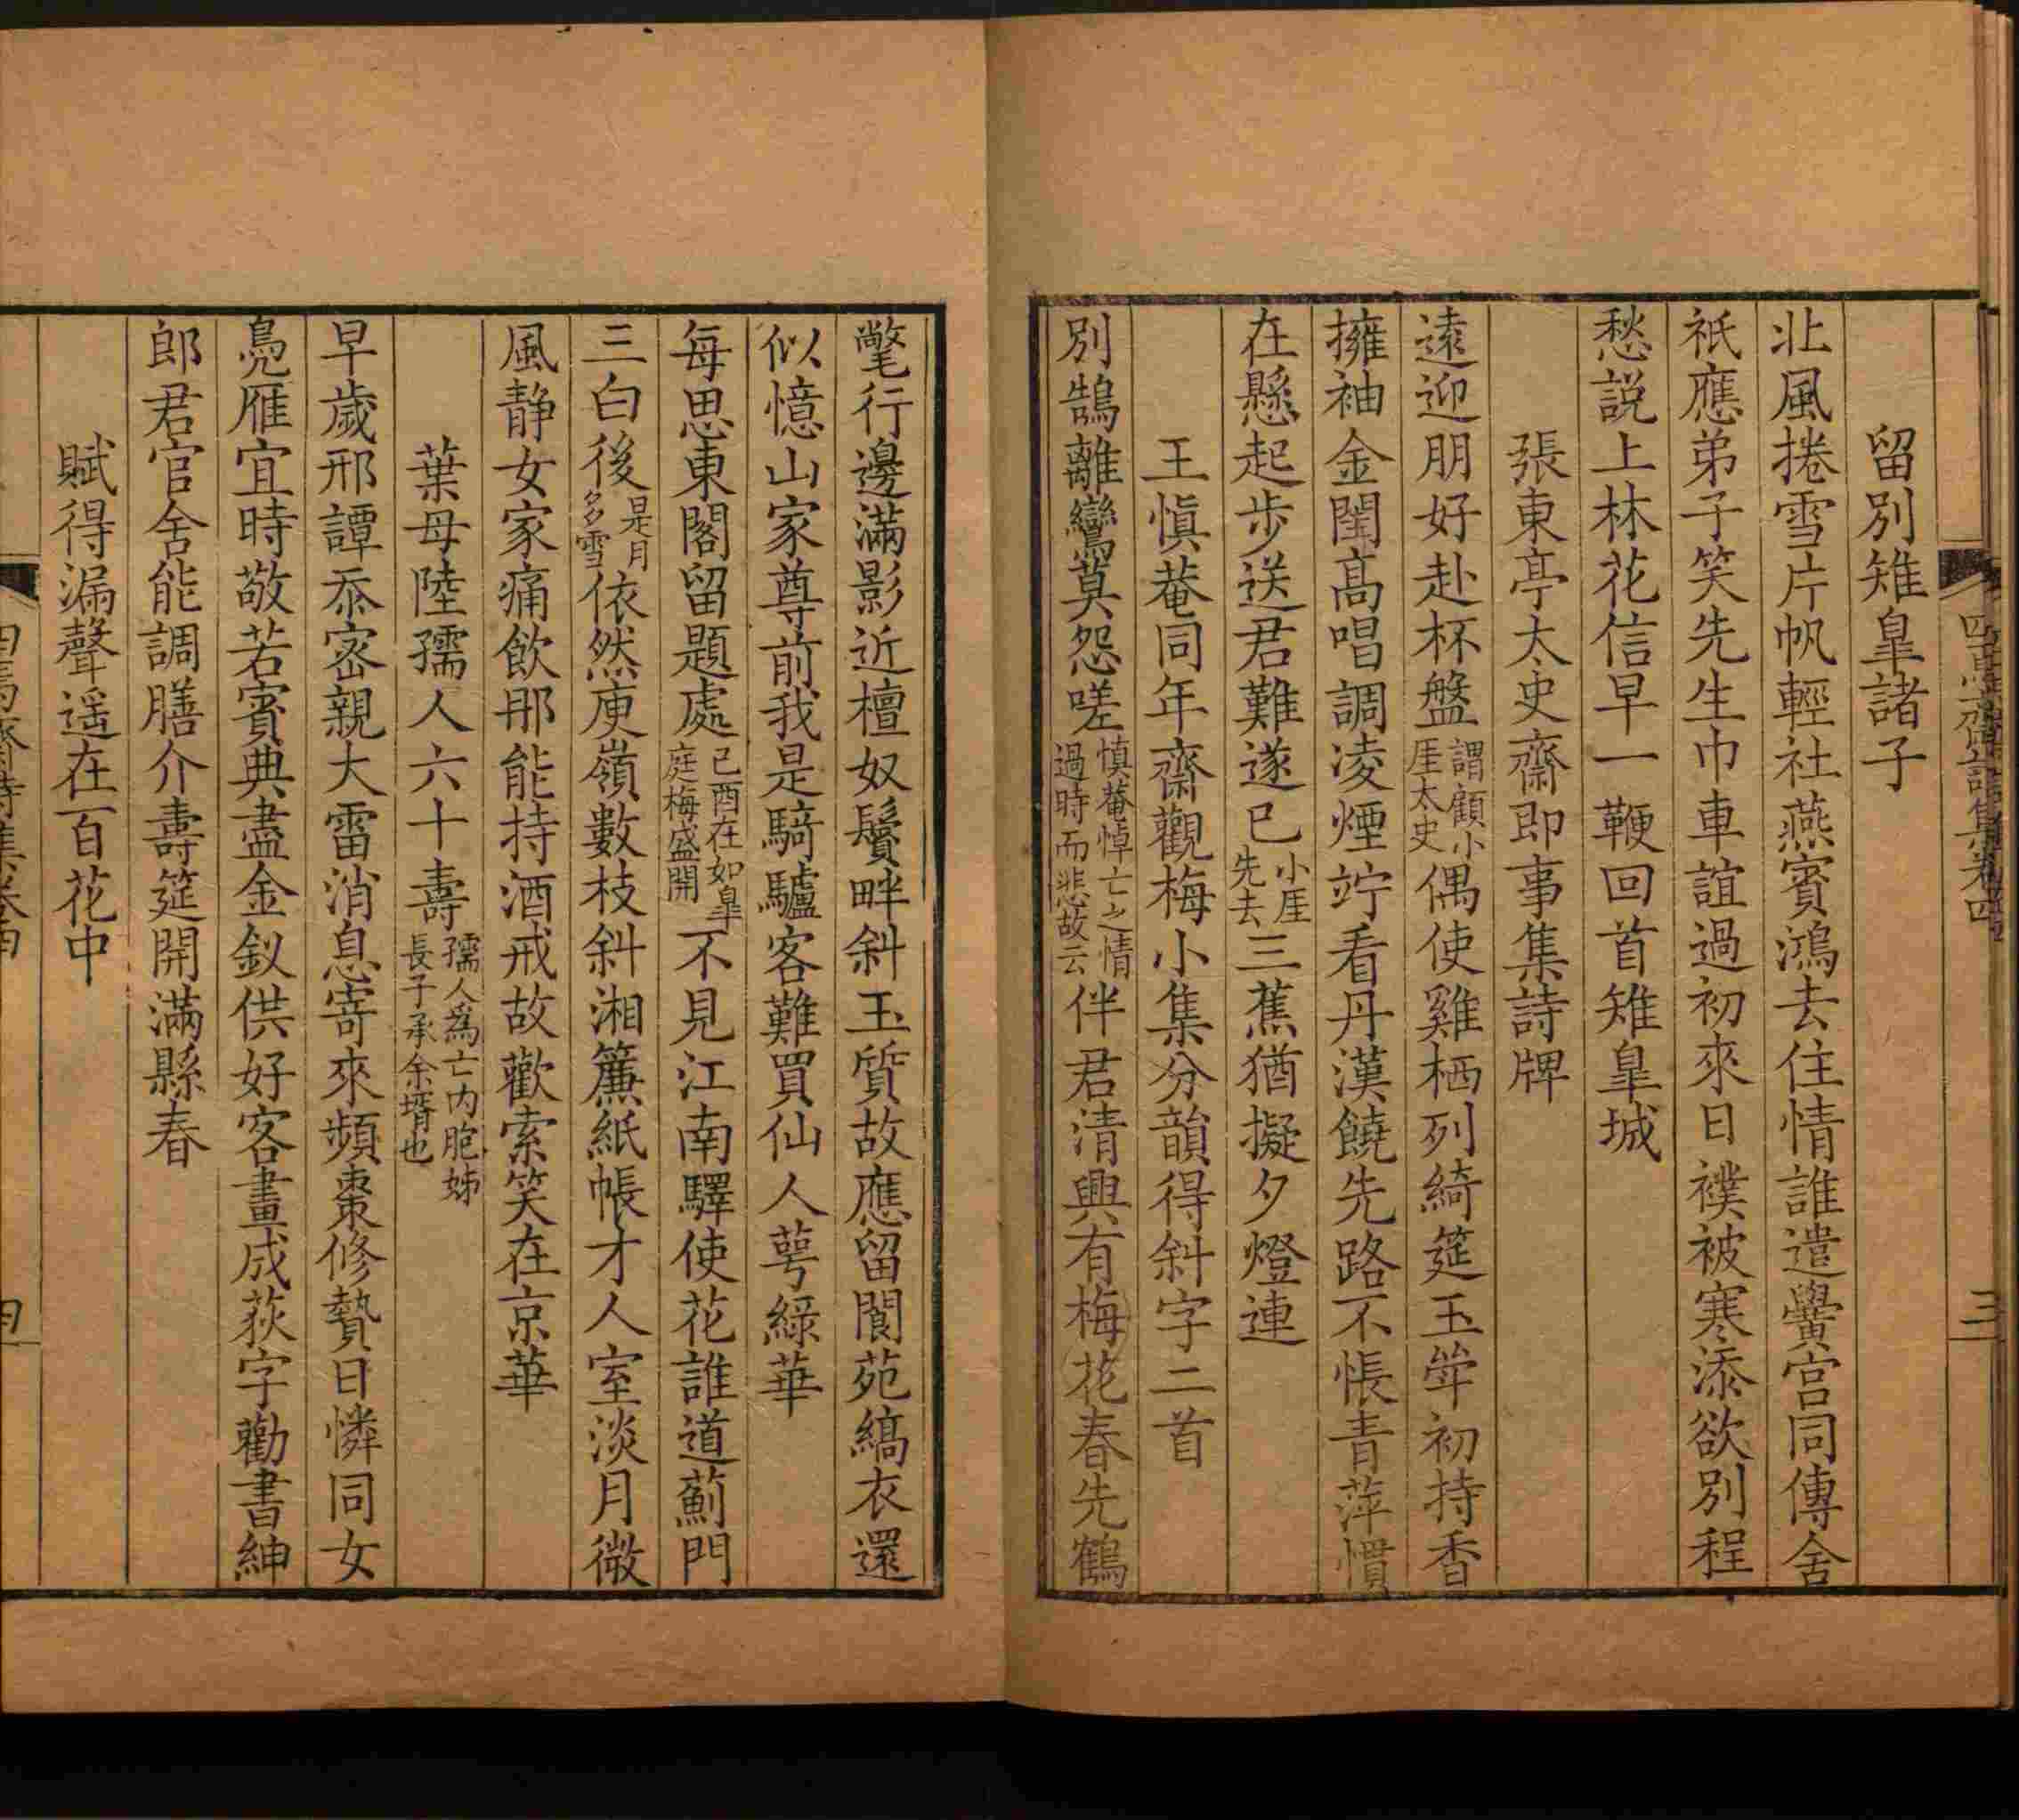 留別雉皐諸子
北風捲雪片帆輕社燕賓鴻去住情誰遣黌宮同傳舍
祇應弟子笑先生巾車誼過初來日襆被寒添欲別程
愁説上林花信早一鞭回首雉皐城
張東亭太史齋即事集詩牌
遠迎朋好赴杯盤謂顧小厓太史偶使雞栖列綺筵玉斝初持香
擁袖金閨高唱調凌煙竚看丹漢饒先路不悵青萍慣
在懸起步送君難遂已小厓先去三蕉猶擬夕燈連
王愼菴同年齋觀梅小集分韻得斜字二首
別鵠離鸞莫怨嗟愼菴悼亡之情過時而悲故云伴君清興有梅花春先鶴
氅行邊滿影近檀奴鬢畔斜玉質故應留閬苑縞衣還
似憶山家尊前我是騎驢客難買仙人萼綠華
每思東閣留題處己酉在如皐庭梅盛開不見江南驛使花誰道薊門
三白後是月多雪依然庾嶺數枝斜湘簾紙帳才人室淡月微
風静女家痛飲那能持酒戒故歡索笑在京華
葉母陸孺人六十壽孺人爲亡内胞姊長子承余壻也
早歲邢譚忝宻親大雷消息寄來頻棗修贄日憐同女
鳧雁宜時敬若賓典盡金釵供好客畫成荻字勸書紳
郎君官舍能調膳介壽筵開滿縣春
賦得漏聲遥在百花中